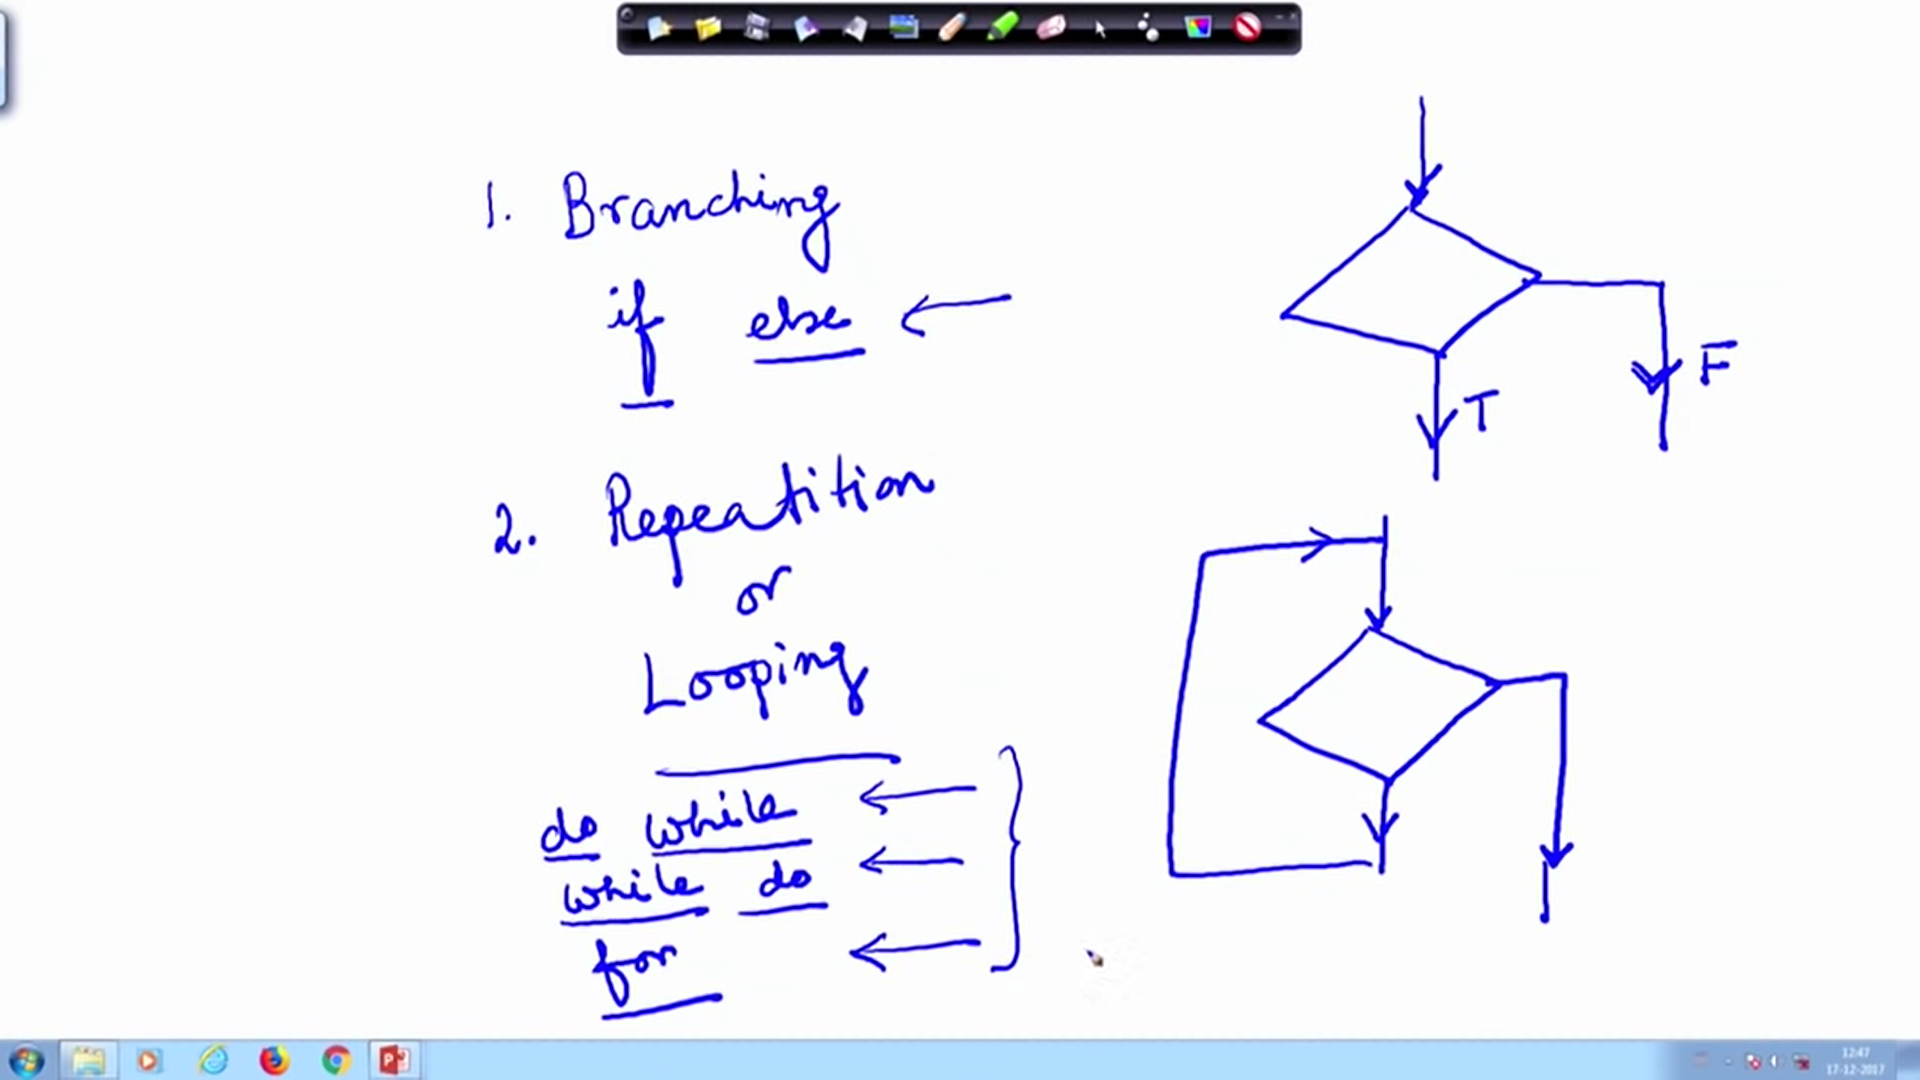 1. Branching
if else
T
F
2. Repeatition
or
Looping
do while
while do
for
12:47
17-12-2017